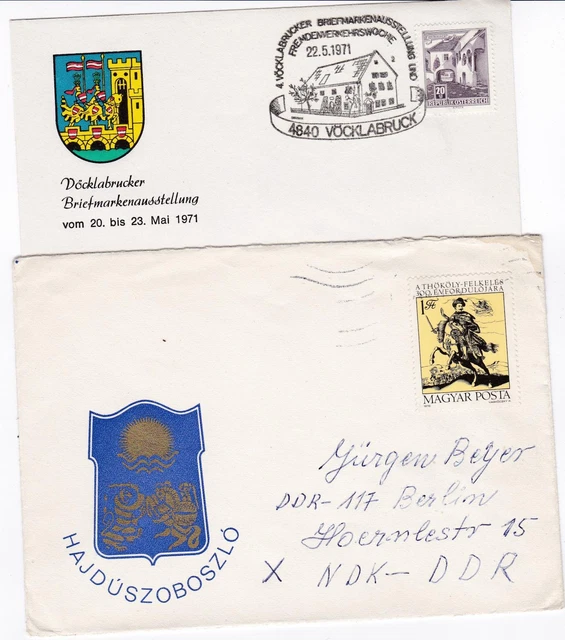 4. VÖCKLABRUCKER BRIEFMARKENAUSSTELLUNG UND
FREMDENVERKEHRSWOCHE
22.5.1971
4840 VÖCKLABRUCK
20
REPUBLIK ÖSTERREICH
Vöcklabrucker
Briefmarkenausstellung
vom 20. bis 23. Mai 1971
A THÖKÖLY-FELKELÉS
300. ÉVFORDULÓJÁRA
1 Ft
MAGYAR POSTA
HAJDÚSZOBOSZLÓ
Jürgen Beyer
DDR-117 Berlin
Hoernlestr 15
X NDK-DDR